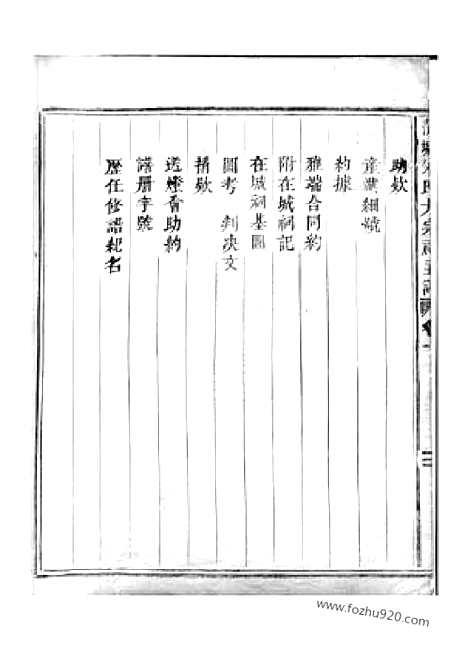 助款
產業細號
約據
雅端合同約
附在城祠記
在城祠基圖
圖考 判决文
捐款
送燈會助約
譜册字號
歷任修譜裁名
氏大宗
www.fozhu920.com